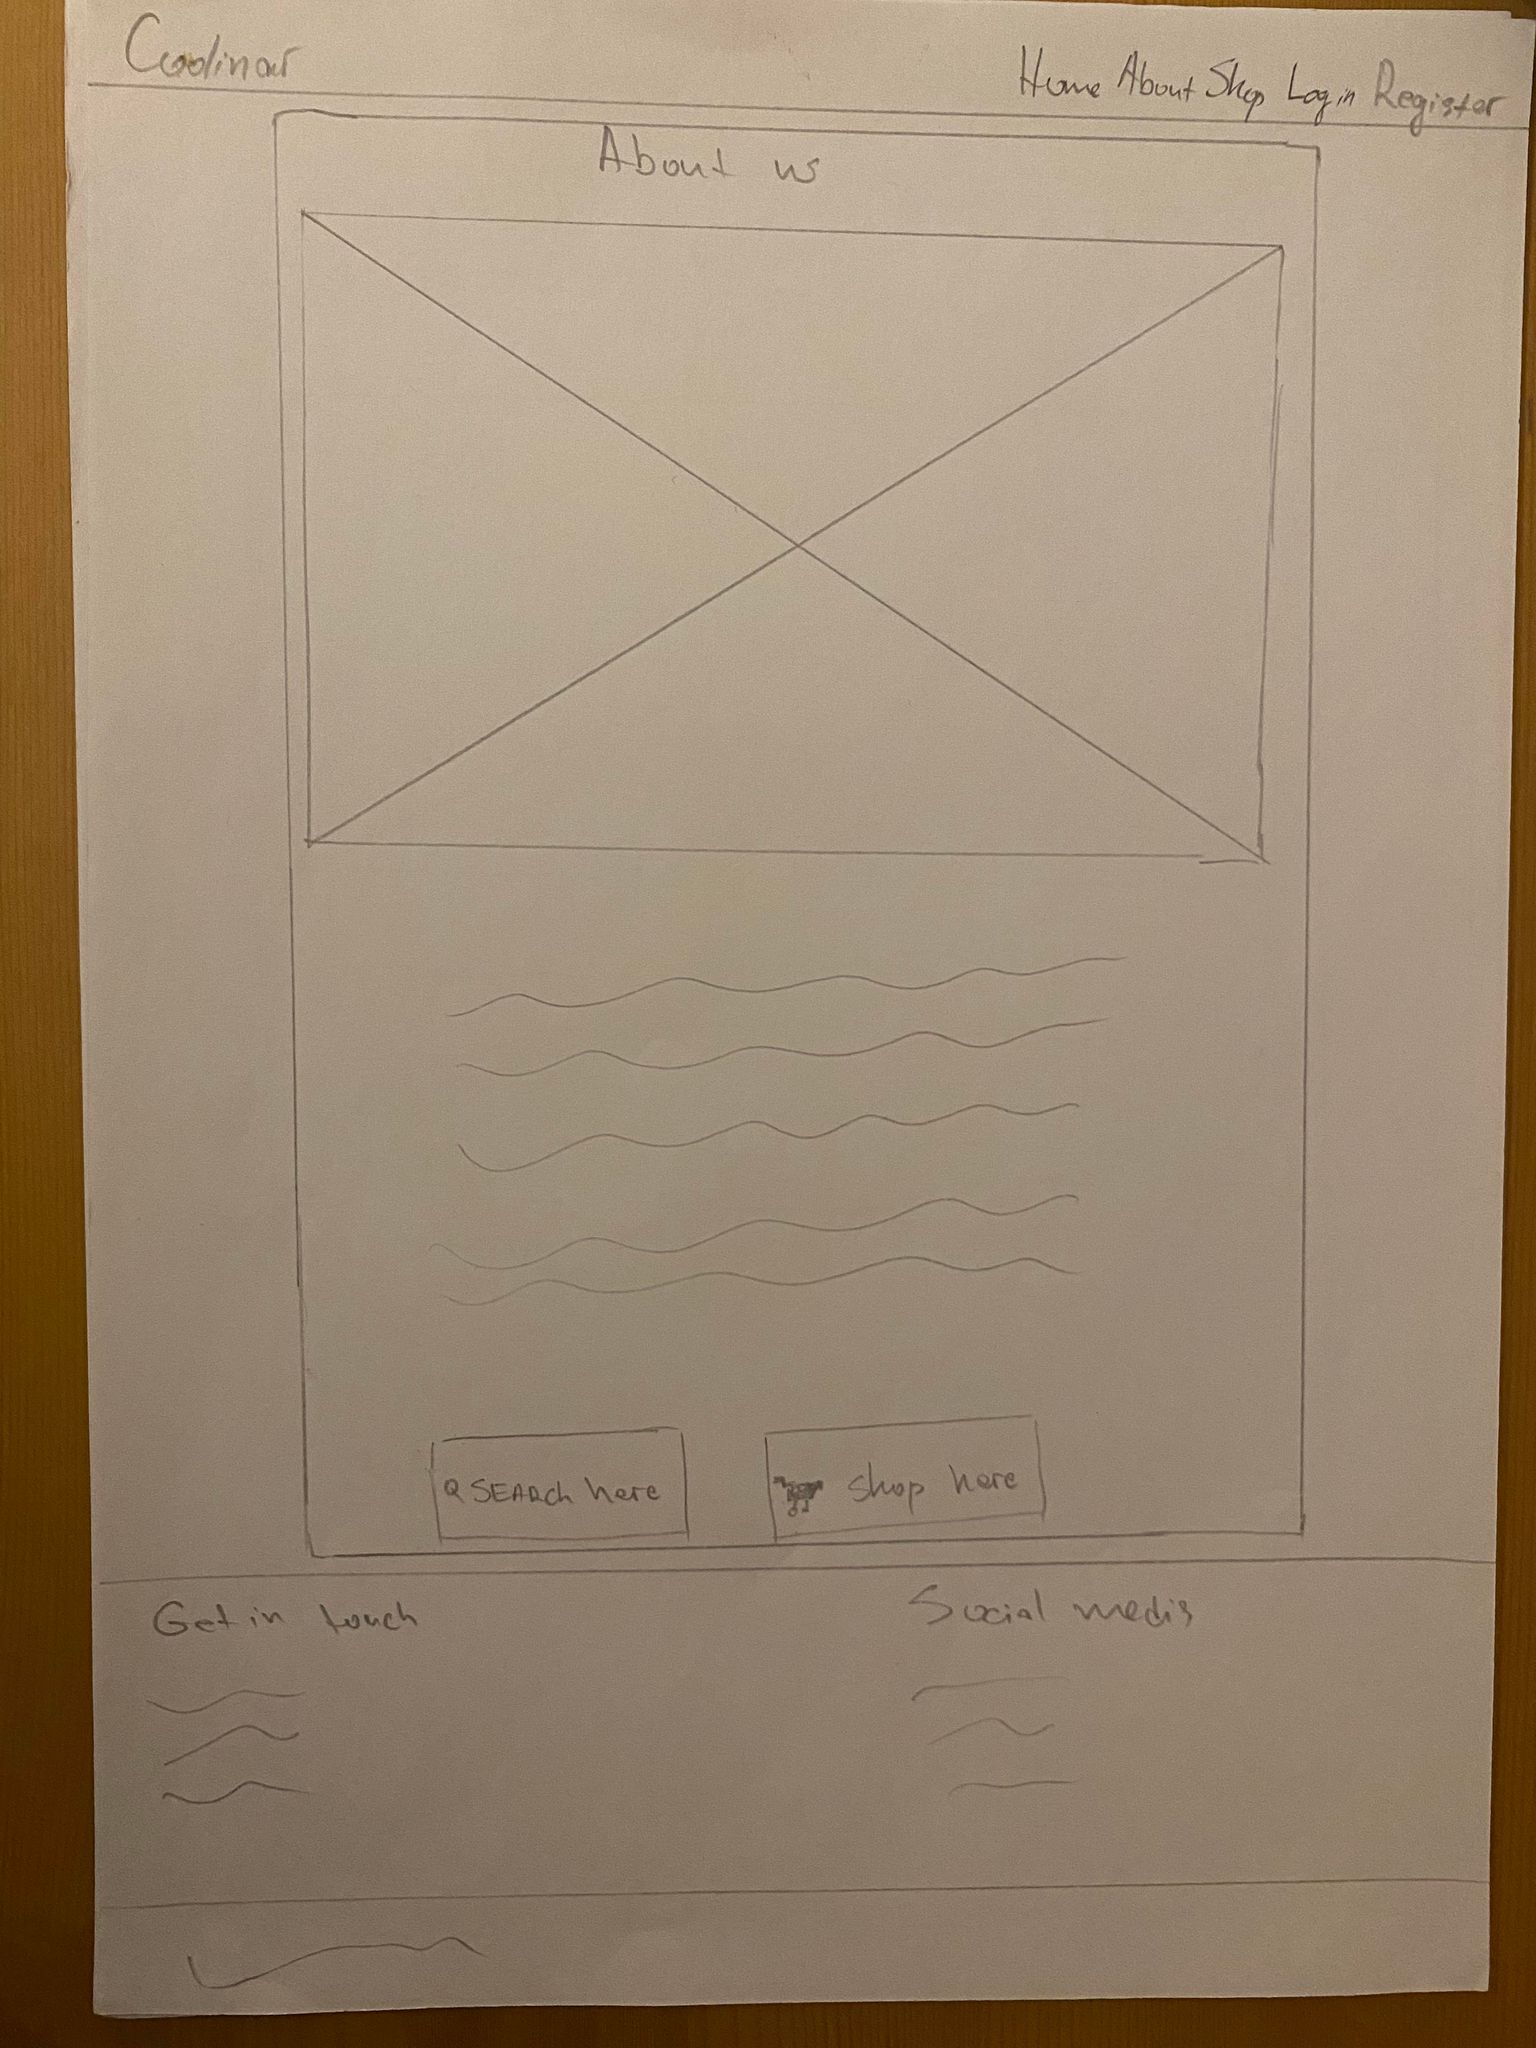 Coolinar
Home About Shop Login Register
About us
SEARCh here
shop here
Get in touch
Social media